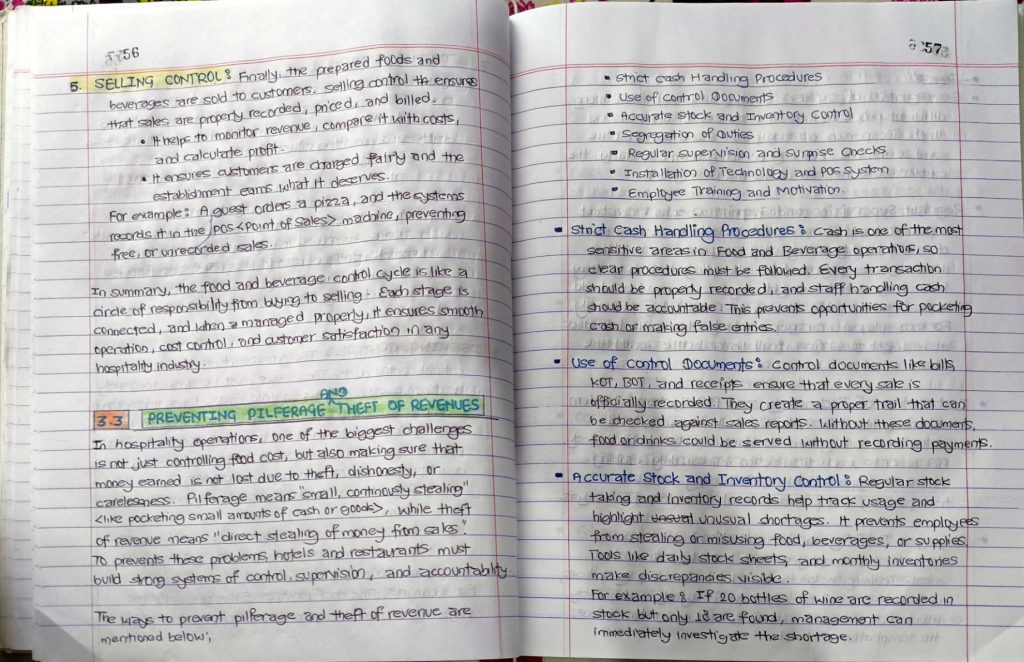 56
5. SELLING CONTROL : Finally, the prepared foods and
beverages are sold to customers. Selling control th ensures
that sales are properly recorded, priced, and billed.
• It helps to monitor revenue, compare it with costs,
and calculate profit.
• It ensures customers are charged fairly and the
establishment earns what it deserves.
For example : A guest orders a pizza, and the systems
records it in the POS <Point of Sales> machine, preventing
free, or unrecorded sales.
In summary, the food and beverage control cycle is like a
circle of responsibility from buying to selling. Each stage is
connected, and when a managed properly, it ensures smooth
operation, cost control, and customer satisfaction in any
hospitality industry.
3.3 PREVENTING PILFERAGE AND THEFT OF REVENUES
In hospitality operations, one of the biggest challenges
is not just controlling food cost, but also making sure that
money earned is not lost due to theft, dishonesty, or
carelessness. Pilferage means "small, continously stealing"
<like pocketing small amounts of cash or goods>, while theft
of revenue means "direct stealing of money from sales".
To prevents these problems, hotels and restaurants must
build strong systems of control, supervision, and accountability.
The ways to prevent pilferage and theft of revenue are
mentioned below;
57
• Strict cash Handling Procedures
• Use of control Documents
• Accurate stock and Inventory control
• Segregation of duties
• Regular supervision and surprise checks
• Installation of Technology and POS system
• Employee Training and Motivation.
• Strict Cash Handling Procedures : Cash is one of the most
sensitive areas in Food and Beverage operations, so
clear procedures must be followed. Every transaction
should be properly recorded, and staff handling cash
should be accountable. This prevents opportunities for pocketing
cash or making false entries.
• Use of Control Documents : Control documents like bills,
KOT, BOT, and receipts ensure that every sale is
officially recorded. They create a proper trail that can
be checked against sales reports. Without these documents,
food or drinks could be served without recording payments.
• Accurate Stock and Inventory Control : Regular stock
taking and inventory records help track usage and
highlight unusual shortages. It prevents employees
from stealing or misusing food, beverages, or supplies.
Tools like daily stock sheets, and monthly inventories
make discrepancies visible.
For example : If 20 bottles of wine are recorded in
stock but only 18 are found, management can
immediately investigate the shortage.